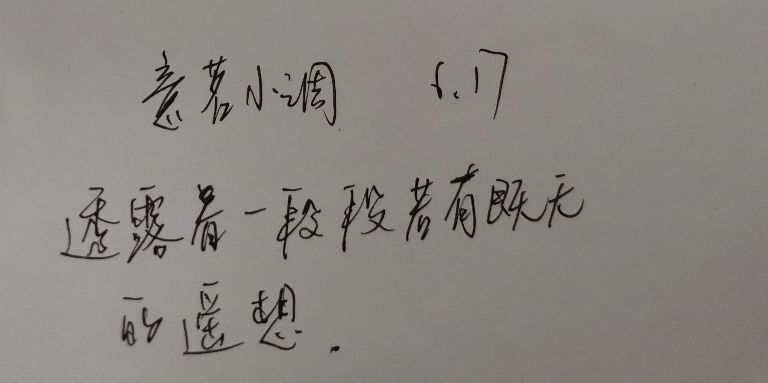 意茗小调 6.17
透露着一段段若有既无
的遥想.